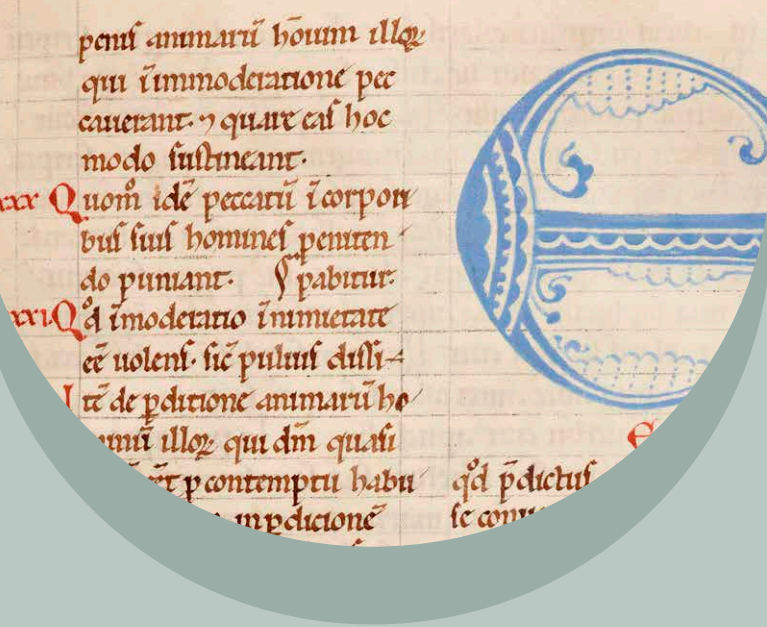 penis animarū hōium illoꝝ
qui ī immoderatione pec
cauerant· ⁊ quare eas hoc
modo sustineant·
xxx Quom̊ idē peccatū ī corpori
bus suis homines peniten
do puniant· pabitur·
xxi Qd̊ īmoderatio ī nimietate
eē uolens· sic̄ puluis dissi-
Itē de ꝑditione animarū ho
illoꝝ qui dm̄ quasi
ꝑ contemptū habu
in ꝑdicione
E
E
qd̊ p̄dictus
se